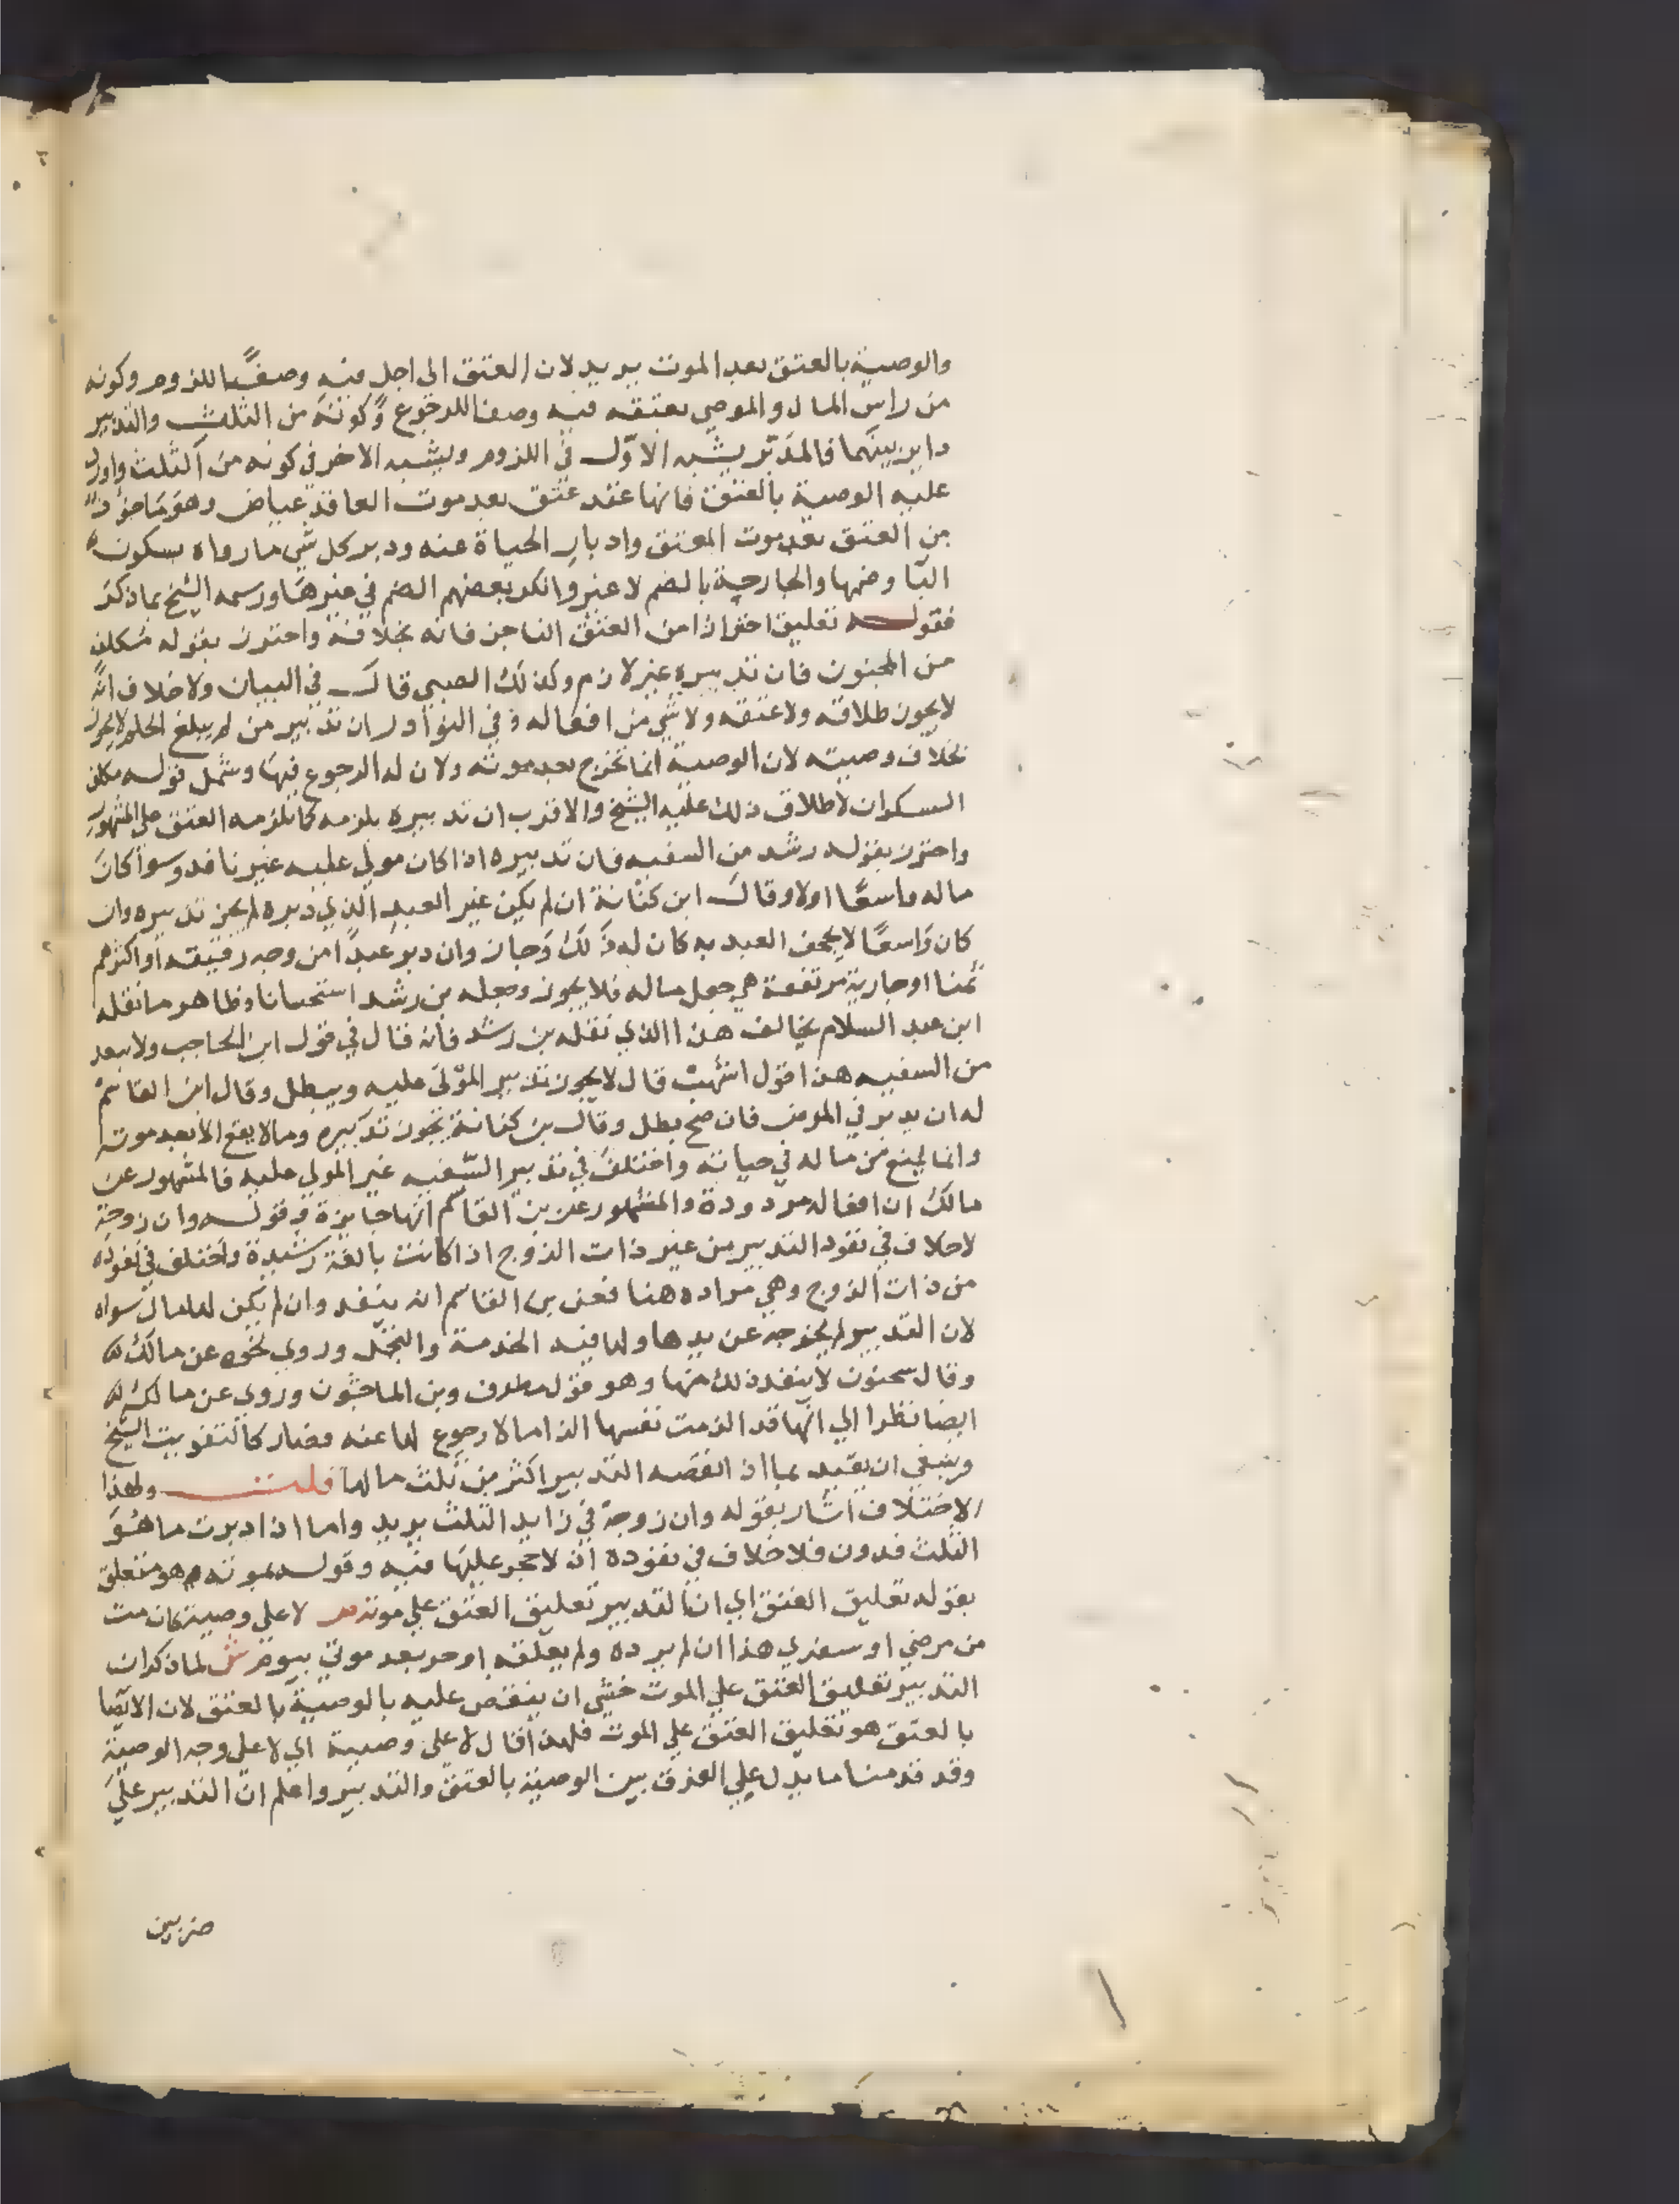 والوصية بالعتق بعد الموت يريد لان العتق الى اجل فيه وصفا اللزوم وكونه
من راس المال والموصي بعتقه فيه وصفا للرجوع وكونه من الثلث والتدبير
داير بينهما فالمدبر يشبه الاول في اللزوم ويشبه الاخر في كونه من الثلث واورد
عليه الوصية بالعتق فانها عقد عتق بعد موت العاقد عياض وهو ماخوذ
من العتق بعد موت المعتق وادبار الحياة عنه ودبر كل شي ما رواه بسكون
البا وضمها والجارحية بالضم لا غير وانكر بعضهم الضم في غيرها ورسمه الشيخ بما ذكر
فقوله تعليق احترازا من العتق الناجز فانه بخلافه واحترز بقوله مكلف
من المجنون فان تدبيره غير لازم وكذلك الصبي قال في البيان ولا خلاف انه
لا يجوز طلاقه ولا عتقه ولا شي من افعاله وفي النوادر ان تدبير من لم يبلغ الحلم لا يجوز
بخلاف وصيته لان الوصية انما تخرج بعد موته ولان له الرجوع فيها وشمل قوله مكلف
السكران لاطلاق ذلك عليه الشيخ والاقرب ان تدبيره يلزمه كما يلزمه العتق على المشهور
واحترز بقوله رشد من السفيه فان تدبيره اذا كان مولي عليه غير نافد وسوا كان
ماله واسعا اولا وقال ابن كنانة ان لم يكن غير العبد الذي دبره لم يجز تدبيره وان
كان واسعا لا يجحف العبد به كان له ذلك وجاز وان دبر عبدا من وجه رقيقه او اكثرهم
ثمنا او جارية مرتفعة هي جل ماله فلا يجوز وجعله بن رشد استحسانا وظاهر ما نقله
ابن عبد السلام يخالف هذا الذي نقله بن رشد فانه قال في قول ابن الحاجب ولا ببعد
من السفيه هذا قول اشهب قال لا يجوز تدبير المولى عليه ويبطل وقال ابن القاسم
له ان يدبر في المرض فان صح بطل وقال بن كنانة يجوز تدبيره وما لا يقع الا بعد موته
وانما يمنع من ماله في حياته واختلف في تدبير السفيه غير المولي عليه فالمشهور عن
مالك ان افعاله مردودة والمشهور عن بن القاسم انها جايزة وقوله وان زوجة
لا خلاف في نفود التدبير من غير ذات الزوج اذا كانت بالغة رشيدة واختلف في نفوده
من ذات الزوج وهي مراده هنا فعن بن القاسم انه ينفد وان لم يكن لها مال سواه
لان التدبير لم يخرجه عن يدها ولها فيه الخدمة والتجمل وروي نحوه عن مالك
وقال سحنون لا ينفد ذلك منها وهو قول مطرف وبن الماجشون وروي عن مالك
ايضا نظرا الي انها قد الزمت نفسها الزاما لا رجوع لها عنه فصار كالتفويت الشيخ
وينبغي ان يقيد بما اذا انقصه التدبير اكثر من ثلث مالها قلت ولهذا
الاختلاف اشار بقوله وان زوجة في زايد الثلث يريد واما اذا دبرت ما هو
الثلث فدون فلا خلاف في نفوده اذ لا حجر عليها فيه وقوله بموته هو متعلق
بقوله تعليق العتق اي ان التدبير تعليق العتق علي موته ص لا علي وصية كان مت
من مرضي او سفري هذا ان لم يرده ولم يعلقه او حر بعد موتي بيوم ش لما ذكر ان
التدبير تعليق العتق علي الموت خشي ان ينقض عليه بالوصية بالعتق لان الايصا
بالعتق هو تعليق العتق علي الموت فلهذا قال لا علي وصية اي لا علي وجه الوصية
وقد قدمنا ما يدل علي الفرق بين الوصية بالعتق والتدبير واعلم ان التدبير علي
ضربين